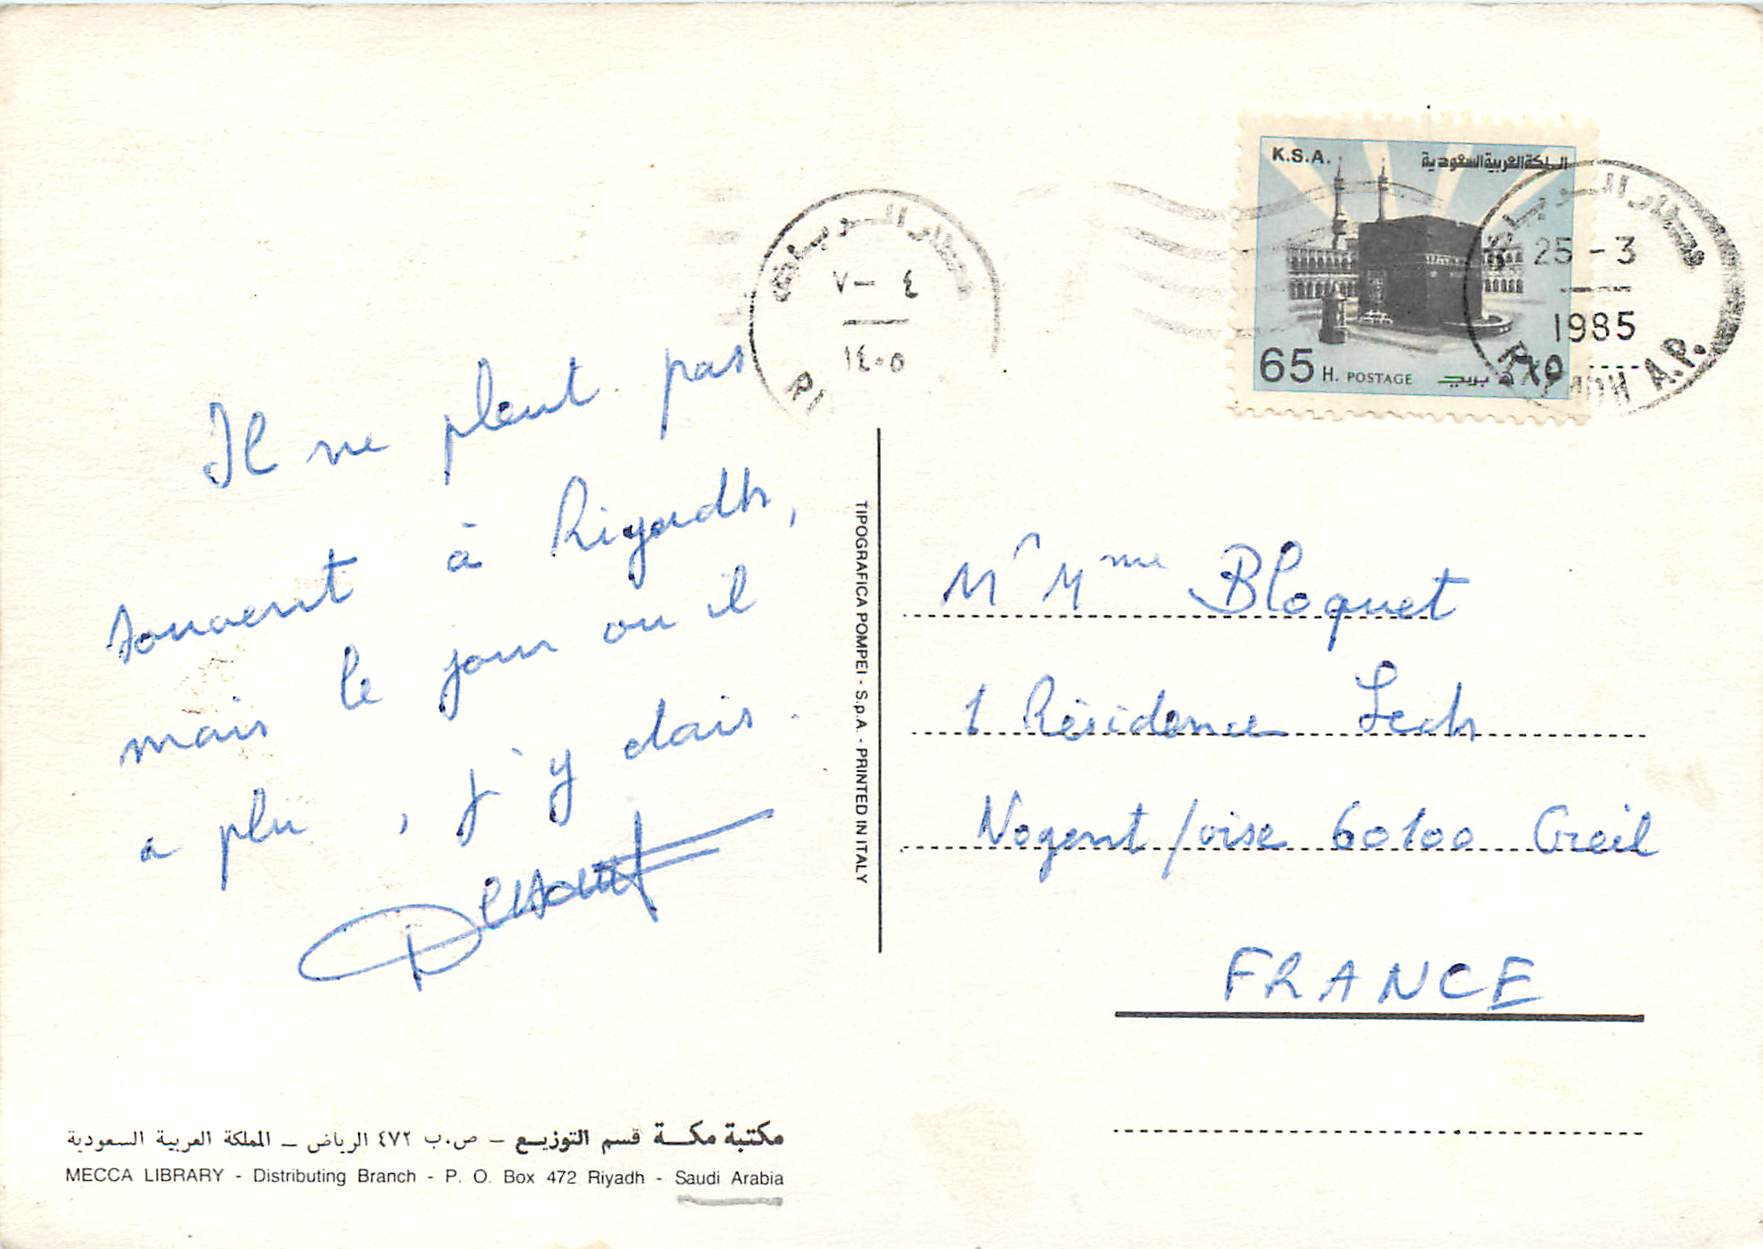 Il ne pleut pas
souvent à Riyadh,
mais le jour ou il
a plu, j'y étais.
TIPOGRAFICA POMPEI - S.p.A. - PRINTED IN ITALY
K.S.A.
المملكة العربية السعودية
65 H. POSTAGE
بريد ٦٥
مطار الرياض
٤ - ٧
١٤٠٥
RI
مطار الرياض
25 - 3
1985
RIYADH A.P.
Mr Mme Bloquet
1 Résidence Lech
Nogent / oise 60100 Creil
FRANCE
مكتبة مكة قسم التوزيع – ص.ب ٤٧٢ الرياض – المملكة العربية السعودية
MECCA LIBRARY - Distributing Branch - P. O. Box 472 Riyadh - Saudi Arabia